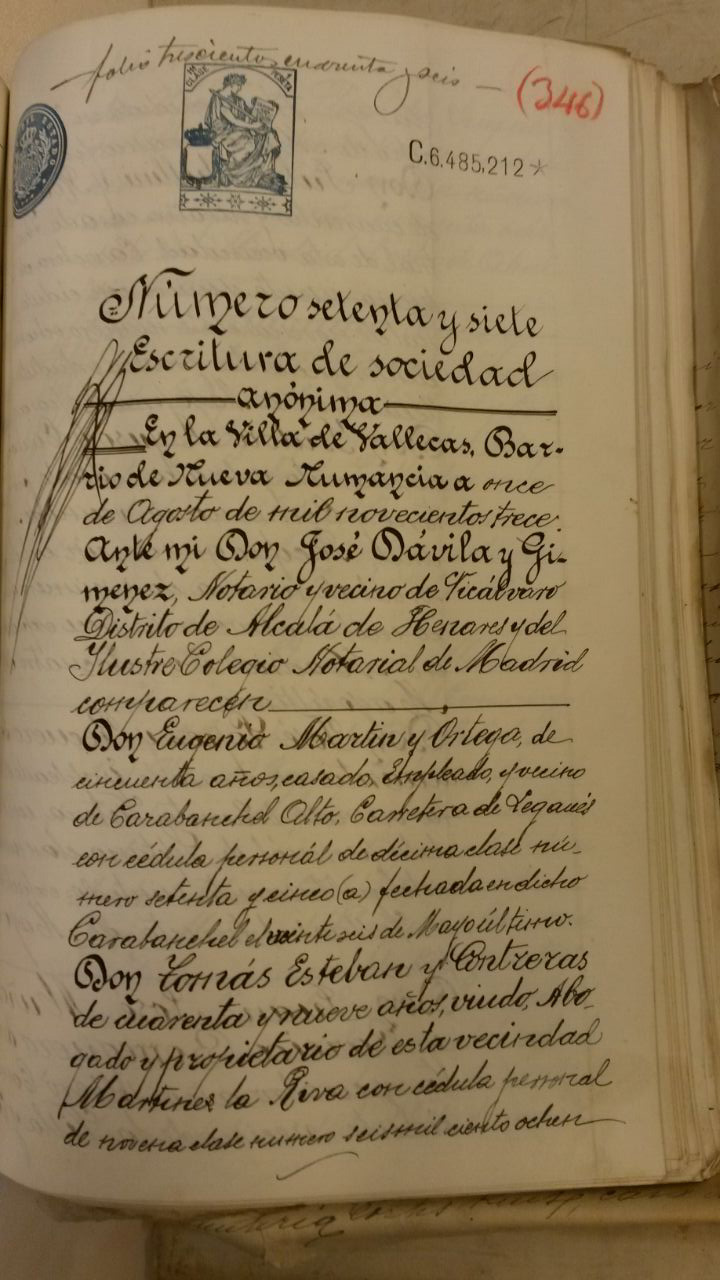 folio trescientos cuarenta y seis — (346)
CLASE
C.6.485,212*
Número setenta y siete
Escritura de sociedad
anónima
En la Villa de Vallecas, Bar-
rio de Nueva Numancia a once
de Agosto de mil novecientos trece.
Ante mi Don José Dávila y Gi-
menez, Notario y vecino de Vicálvaro
Distrito de Alcalá de Henares y del
Ilustre Colegio Notarial de Madrid
comparecen
Don Eugenio Martin y Ortega, de
cincuenta años, casado, Empleado, y vecino
de Carabanchel Alto, Carretera de Leganés
con cédula personál de décima clase nú-
mero setenta y cinco (a) fechada en dicho
Carabanchel el veinte seis de Mayo último.
Don Tomás Esteban y Contreras
de cuarenta y nueve años, viudo, Abo-
gado y propietario de esta vecindad
Martinez la Riva con cédula personal
de novena clase numero seismil ciento ochen